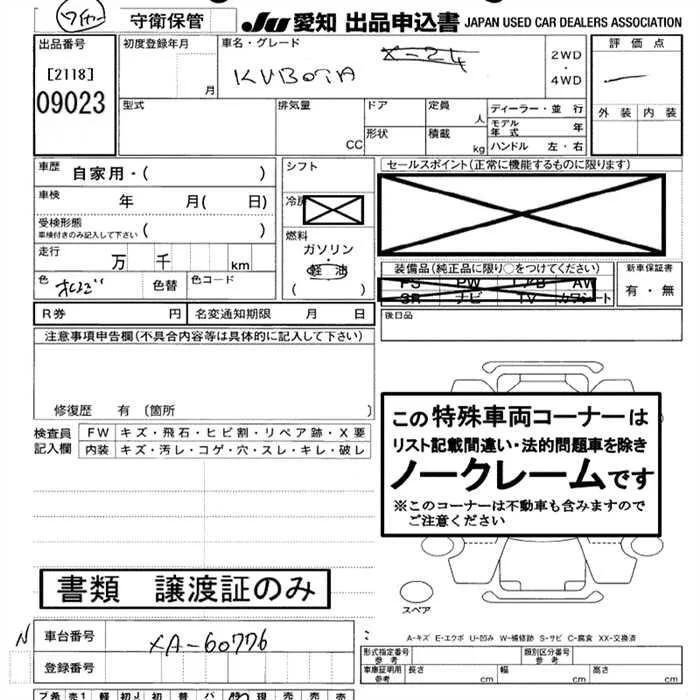 守衛保管 JU 愛知 出品申込書 JAPAN USED CAR DEALERS ASSOCIATION
出品番号 初度登録年月 車名・グレード 2WD ・ 4WD 評価点
[2118] 月 KUBOTA
09023 型式 排気量 CC ドア 定員 人 ディーラー・並行
形状 積載 kg モデル年式 年 外装 内装
ハンドル 左・右
車歴 自家用・( ) シフト セールスポイント(正常に機能するものに限ります)
車検 年 月( 日) 冷房
受検形態 ( )
車検付きのみ記入して下さい
燃料
走行 万 千 km ガソリン・
軽油
( )
色 オレンジ 色替 色コード
装備品(純正品に限り○をつけてください) 新車保証書
PS PW エアB AW 有・無
SR ナビ TV カワシート
R券 円 名変通知期限 月 日 後日品
注意事項申告欄(不具合内容等は具体的に記入して下さい)
修復歴 有 〔箇所 〕
検査員記入欄 FW キズ・飛石・ヒビ割・リペア跡・X要
内装 キズ・汚レ・コゲ・穴・スレ・キレ・破レ
この特殊車両コーナーは
リスト記載間違い・法的問題車を除き
ノークレームです
※このコーナーは不動車も含みますので
ご注意ください
書類 譲渡証のみ
スペア
A-キズ E-エクボ U-凹み W-補修跡 S-サビ C-腐食 XX-交換済
N 車台番号 XA-60776
登録番号
形式指定番号 参考 類別区分番号 参考
車庫証明用 参考 長さ cm 幅 cm 高さ cm